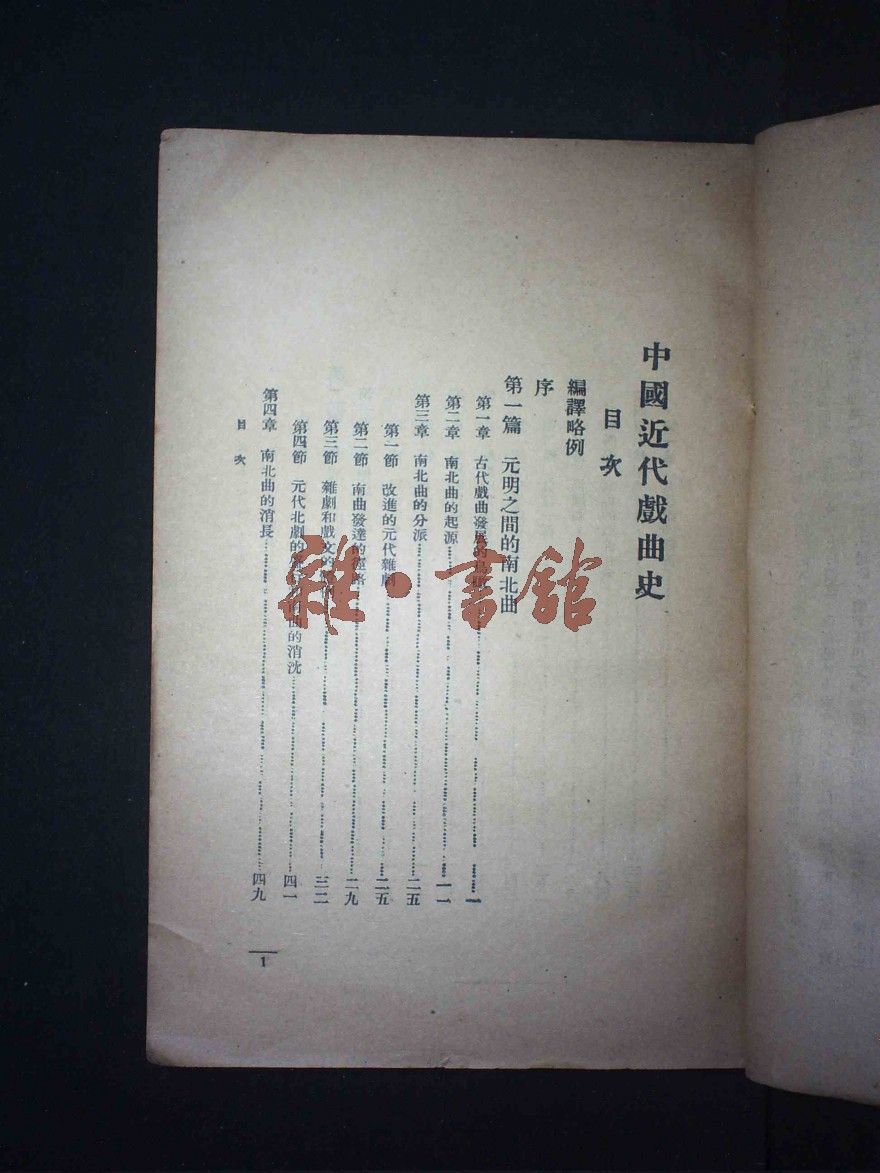 中國近代戲曲史
目次
編譯略例
序
第一篇 元明之間的南北曲
第一章 古代戲曲發展的 一
第二章 南北曲的起源 一一
第三章 南北曲的分派 二五
第一節 改進的元代雜劇 二五
第二節 南曲發達的徑路 二九
第三節 雜劇和戲文的 三二
第四節 元代北劇的 南曲的消沈 四一
第四章 南北曲的消長 四九
目次
1
雜·書館